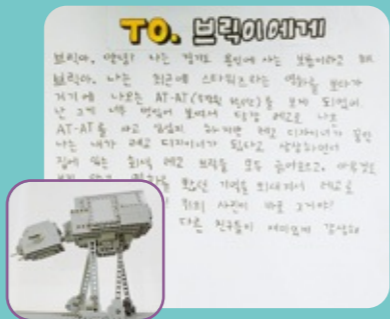 TO. 브릭이에게
브릭아, 안녕? 나는 경기도 용인에 사는 보름이라고 해.
브릭아, 나는 최근에 스타워즈라는 영화를 보다가
거기에 나오는 AT-AT( )를 보게 되었어.
난 그게 너무 멋있어 보여서 당장 레고로 나온
AT-AT를 사고 싶었지 하지만 레고 디자이너가 꿈인
나는 내가 레고 디자이너가 됐다고 상상하면서
집에 있는 회색 레고 브릭을 모두 긁어모으고,
영화를 봤던 기억을 되새겨서 레고로
위의 사진이 바로 그거야!
다른 친구들이 재미있게 감상해